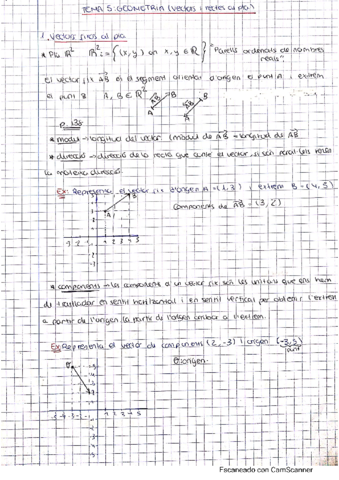 TEMA 5: GEOMETRIA (Vectors i rectes al pla)
1. Vectors fixos al pla
* Pla ℝ² ℝ² := {(x, y) on x, y ∈ ℝ} "Parells ordenats de nombres
reals"
El vector fix AB és el segment orientat d'origen el punt A i extrem
el punt B A, B ∈ ℝ²
A B A B
p. 138
* mòdul → longitud del vector (mòdul de AB = longitud de AB
* direcció → direcció de la recta que conté el vector, si són paral·lels tenen
la mateixa direcció
Ex: Representa el vector fix d'origen A = (1, 3) i extrem B = (4, 5)
Components de AB = (3, 2)
A B
-3 -2 -1 1 2 3 4 5
* components → les components d'un vector fix són les unitats que ens hem
de traslladar en sentit horitzontal i en sentit vertical per obtenir l'extrem
a partir de l'origen.
Ex: Representa el vector de components (2, -3) i origen (-3, 5)
punt
O: origen
-5 -4 -3 -2 -1 1 2 3 4 5
Escaneado con CamScanner